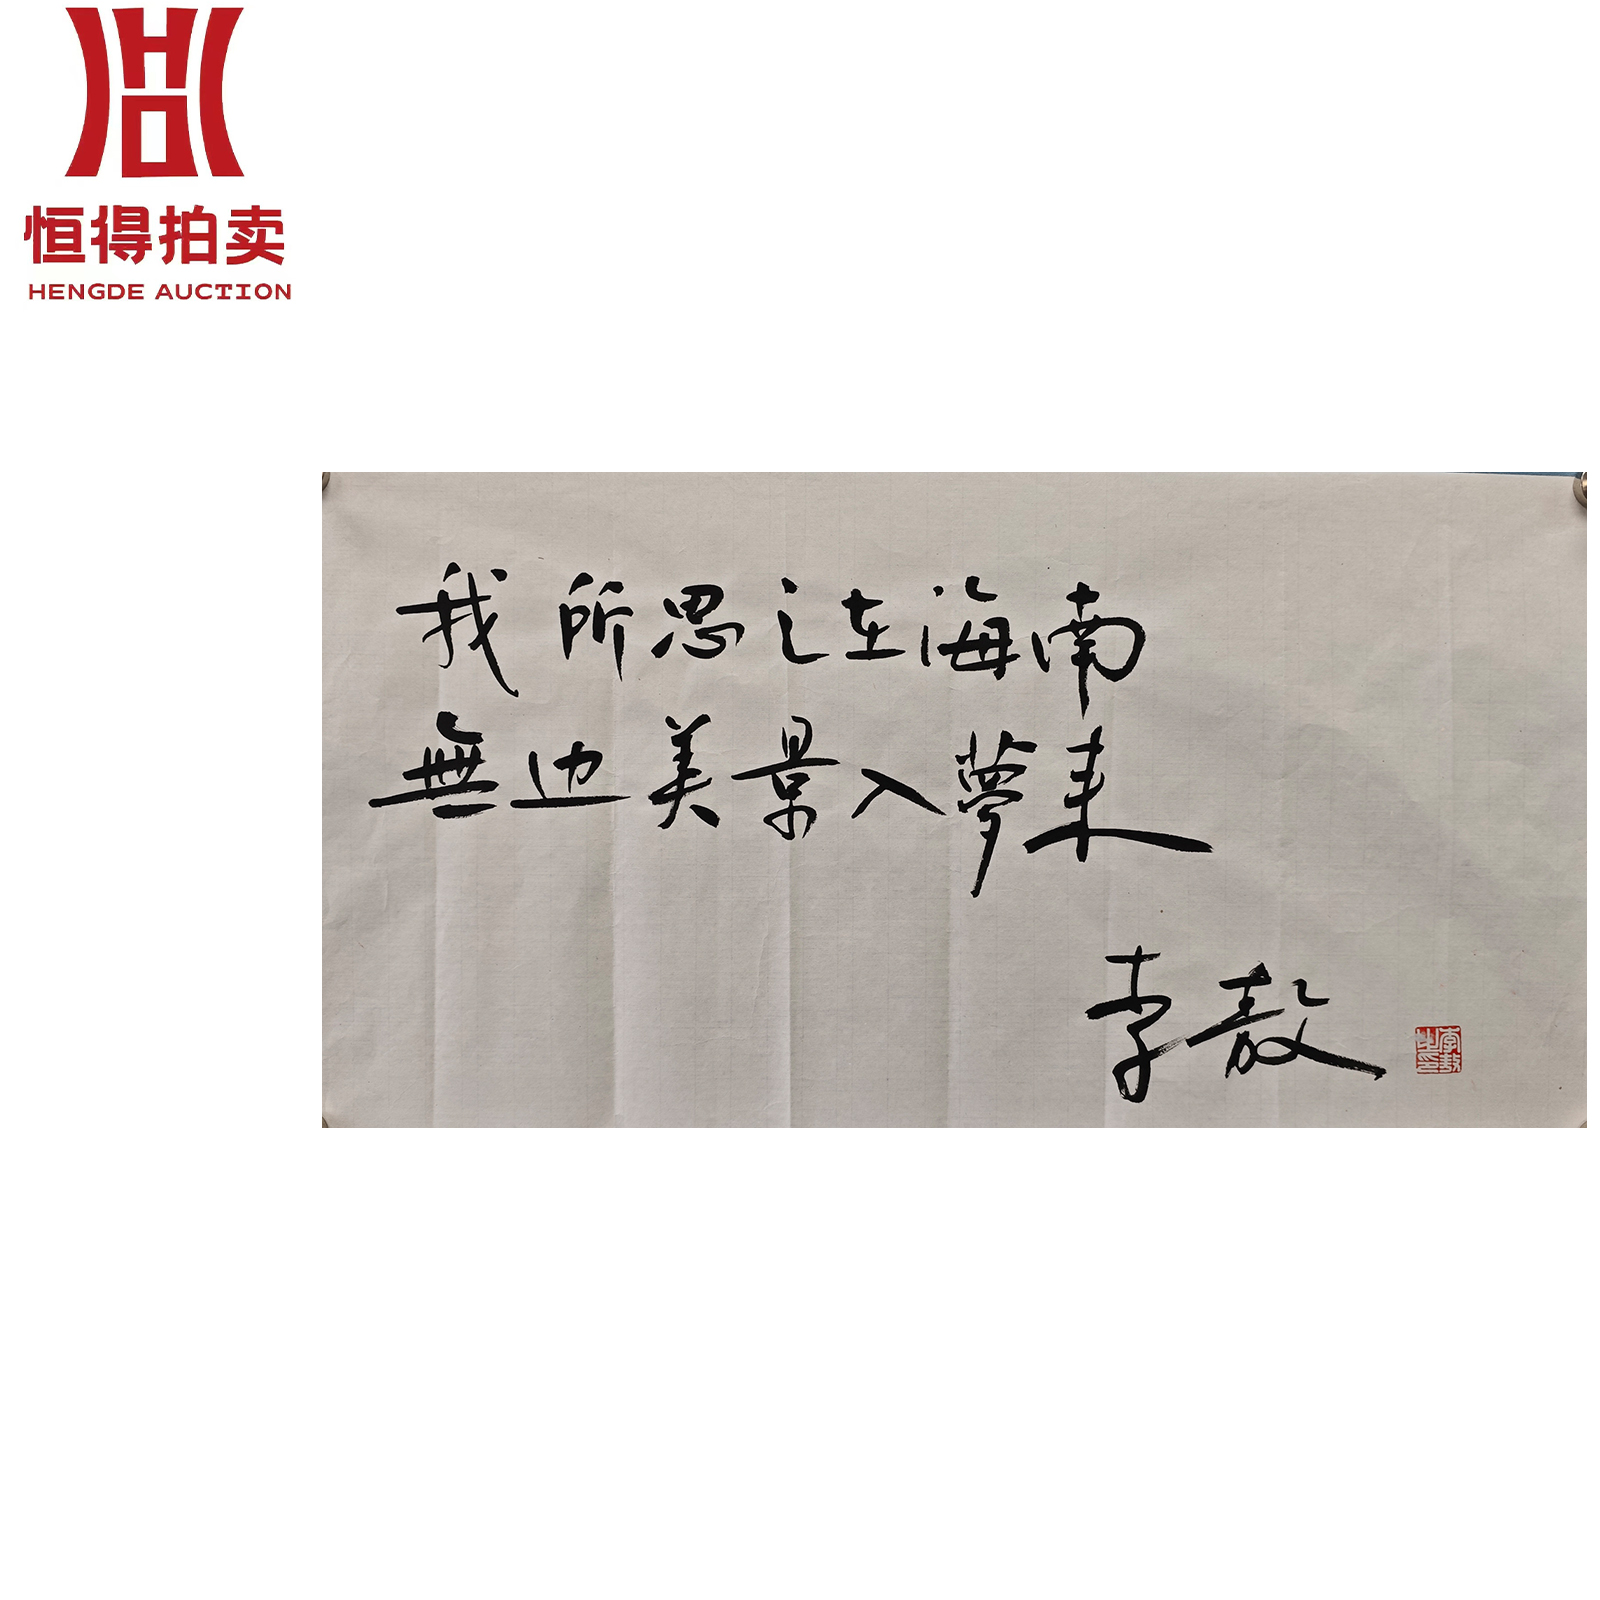 恒得拍卖
HENGDE AUCTION
我所思之在海南
無边美景入夢来
李敖
李敖之印